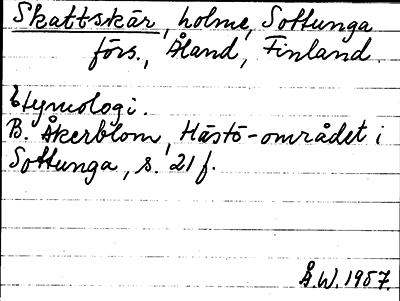 Skattskär, holme, Sottunga
förs., Åland, Finland.
Etymologi.
B. Åkerblom, Hästö-området i
Sottunga, s. 21 f.
Å.W. 1957.